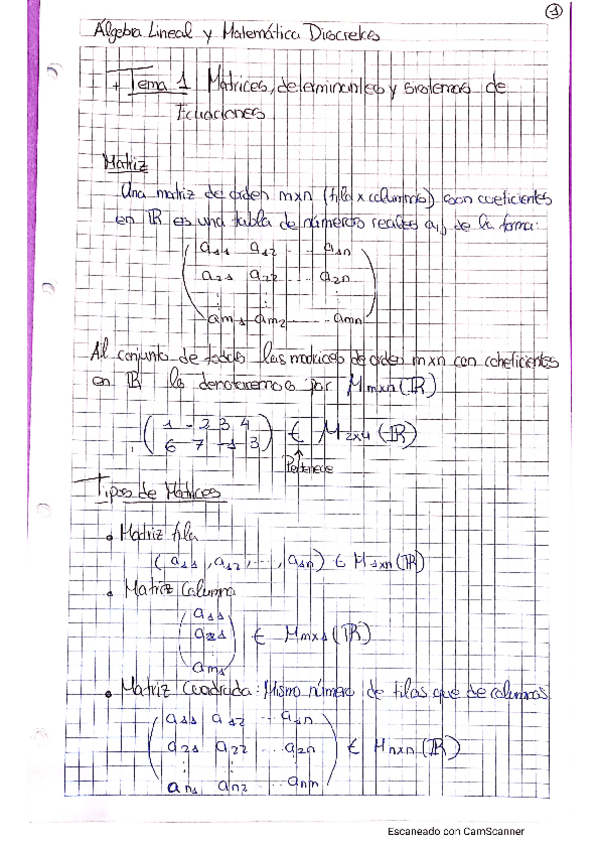 1
Álgebra Lineal y Matemática Discretas
+ Tema 1 Matrices, determinantes y sistemas de
Ecuaciones
Matriz
Una matriz de orden mxn (fila x columnas) con coeficientes
en ℝ es una tabla de números reales aij de la forma:
( a11 a12 ... a1n
a21 a22 ... a2n
⋮ ⋮ ⋮
am1 am2 ... amn )
Al conjunto de todas las matrices de orden mxn con coheficientes
en ℝ lo denotaremos por Mmxn(ℝ)
( 1 -2 3 4
6 -7 -1 3 ) ∈ M2x4(ℝ)
↑
Pertenece
Tipos de Matrices
• Matriz fila
(a11, a12, ..., a1n) ∈ M1xn(ℝ)
• Matriz Columna
( a11
a21
⋮
am1 ) ∈ Mmx1(ℝ)
• Matriz Cuadrada: Mismo número de filas que de columnas
( a11 a12 ... a1n
a21 a22 ... a2n
⋮ ⋮ ⋮
an1 an2 ... ann ) ∈ Mnxn(ℝ)
Escaneado con CamScanner